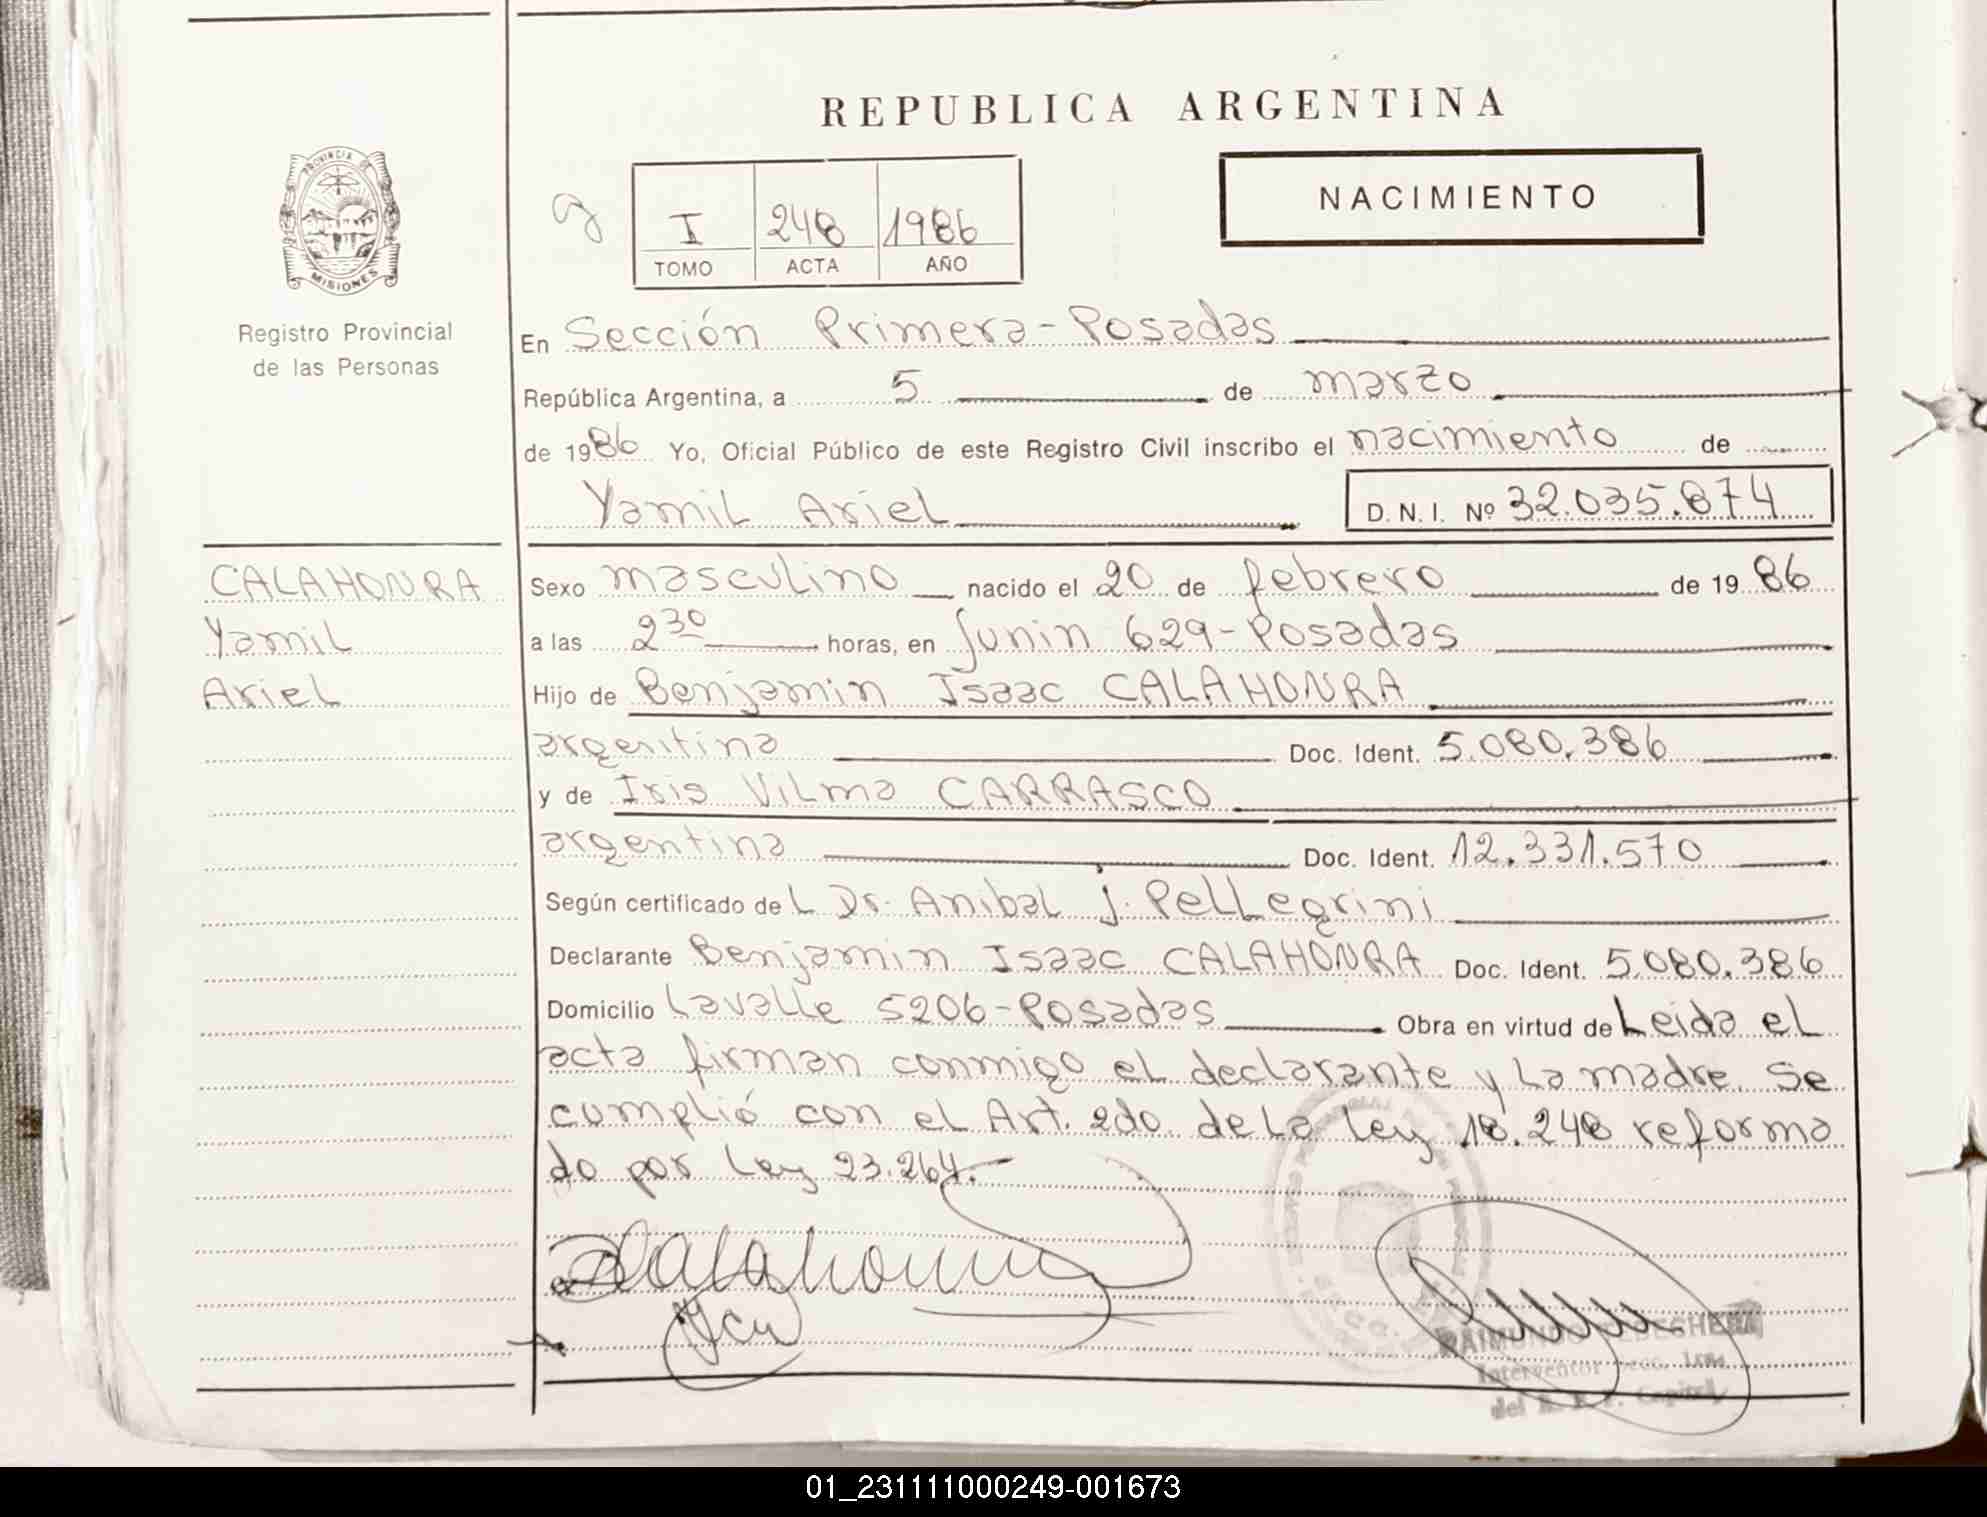 REPUBLICA ARGENTINA
PROVINCIA DE
MISIONES
Registro Provincial
de las Personas
I 248 1986
TOMO ACTA AÑO
NACIMIENTO
En Sección Primera-Posadas
República Argentina, a 5 de marzo
de 1986 Yo, Oficial Público de este Registro Civil inscribo el nacimiento de
Yamil Ariel D.N.I. Nº 32.035.874
CALAHONRA
Yamil
Ariel
Sexo masculino nacido el 20 de febrero de 1986
a las 2 30 horas, en Junin 629-Posadas
Hijo de Benjamin Isaac CALAHONRA
argentina Doc. Ident. 5.080.386
y de Iris Vilma CARRASCO
argentina Doc. Ident. 12.331.570
Según certificado de L Dr. Anibal J. Pellegrini
Declarante Benjamin Isaac CALAHONRA Doc. Ident. 5.080.386
Domicilio Lavalle 5206-Posadas Obra en virtud de Leida el
acta firman conmigo el declarante y la madre. Se
cumplió con el Art. 2do. de la Ley 18.248 reforma
do por Ley 23.264.
Calahonra
RAIMUNDO
Interventor Secc. 1ra.
del R. P. P. Capital
01_231111000249-001673